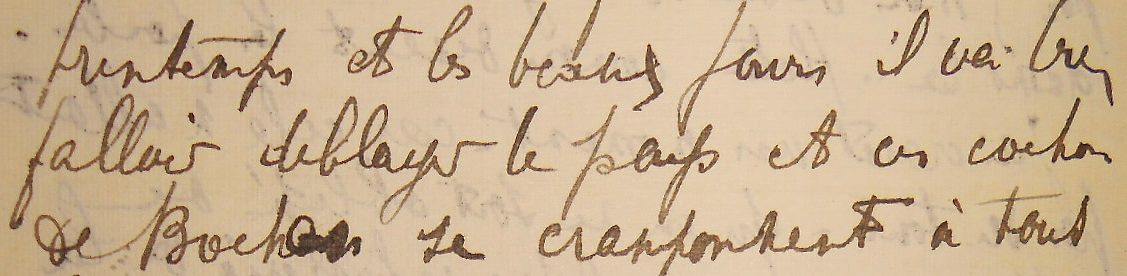 printemps et les beaux jours il va bien
falloir deblayer le pays et ces cochons
de Boches se cramponnent à tout